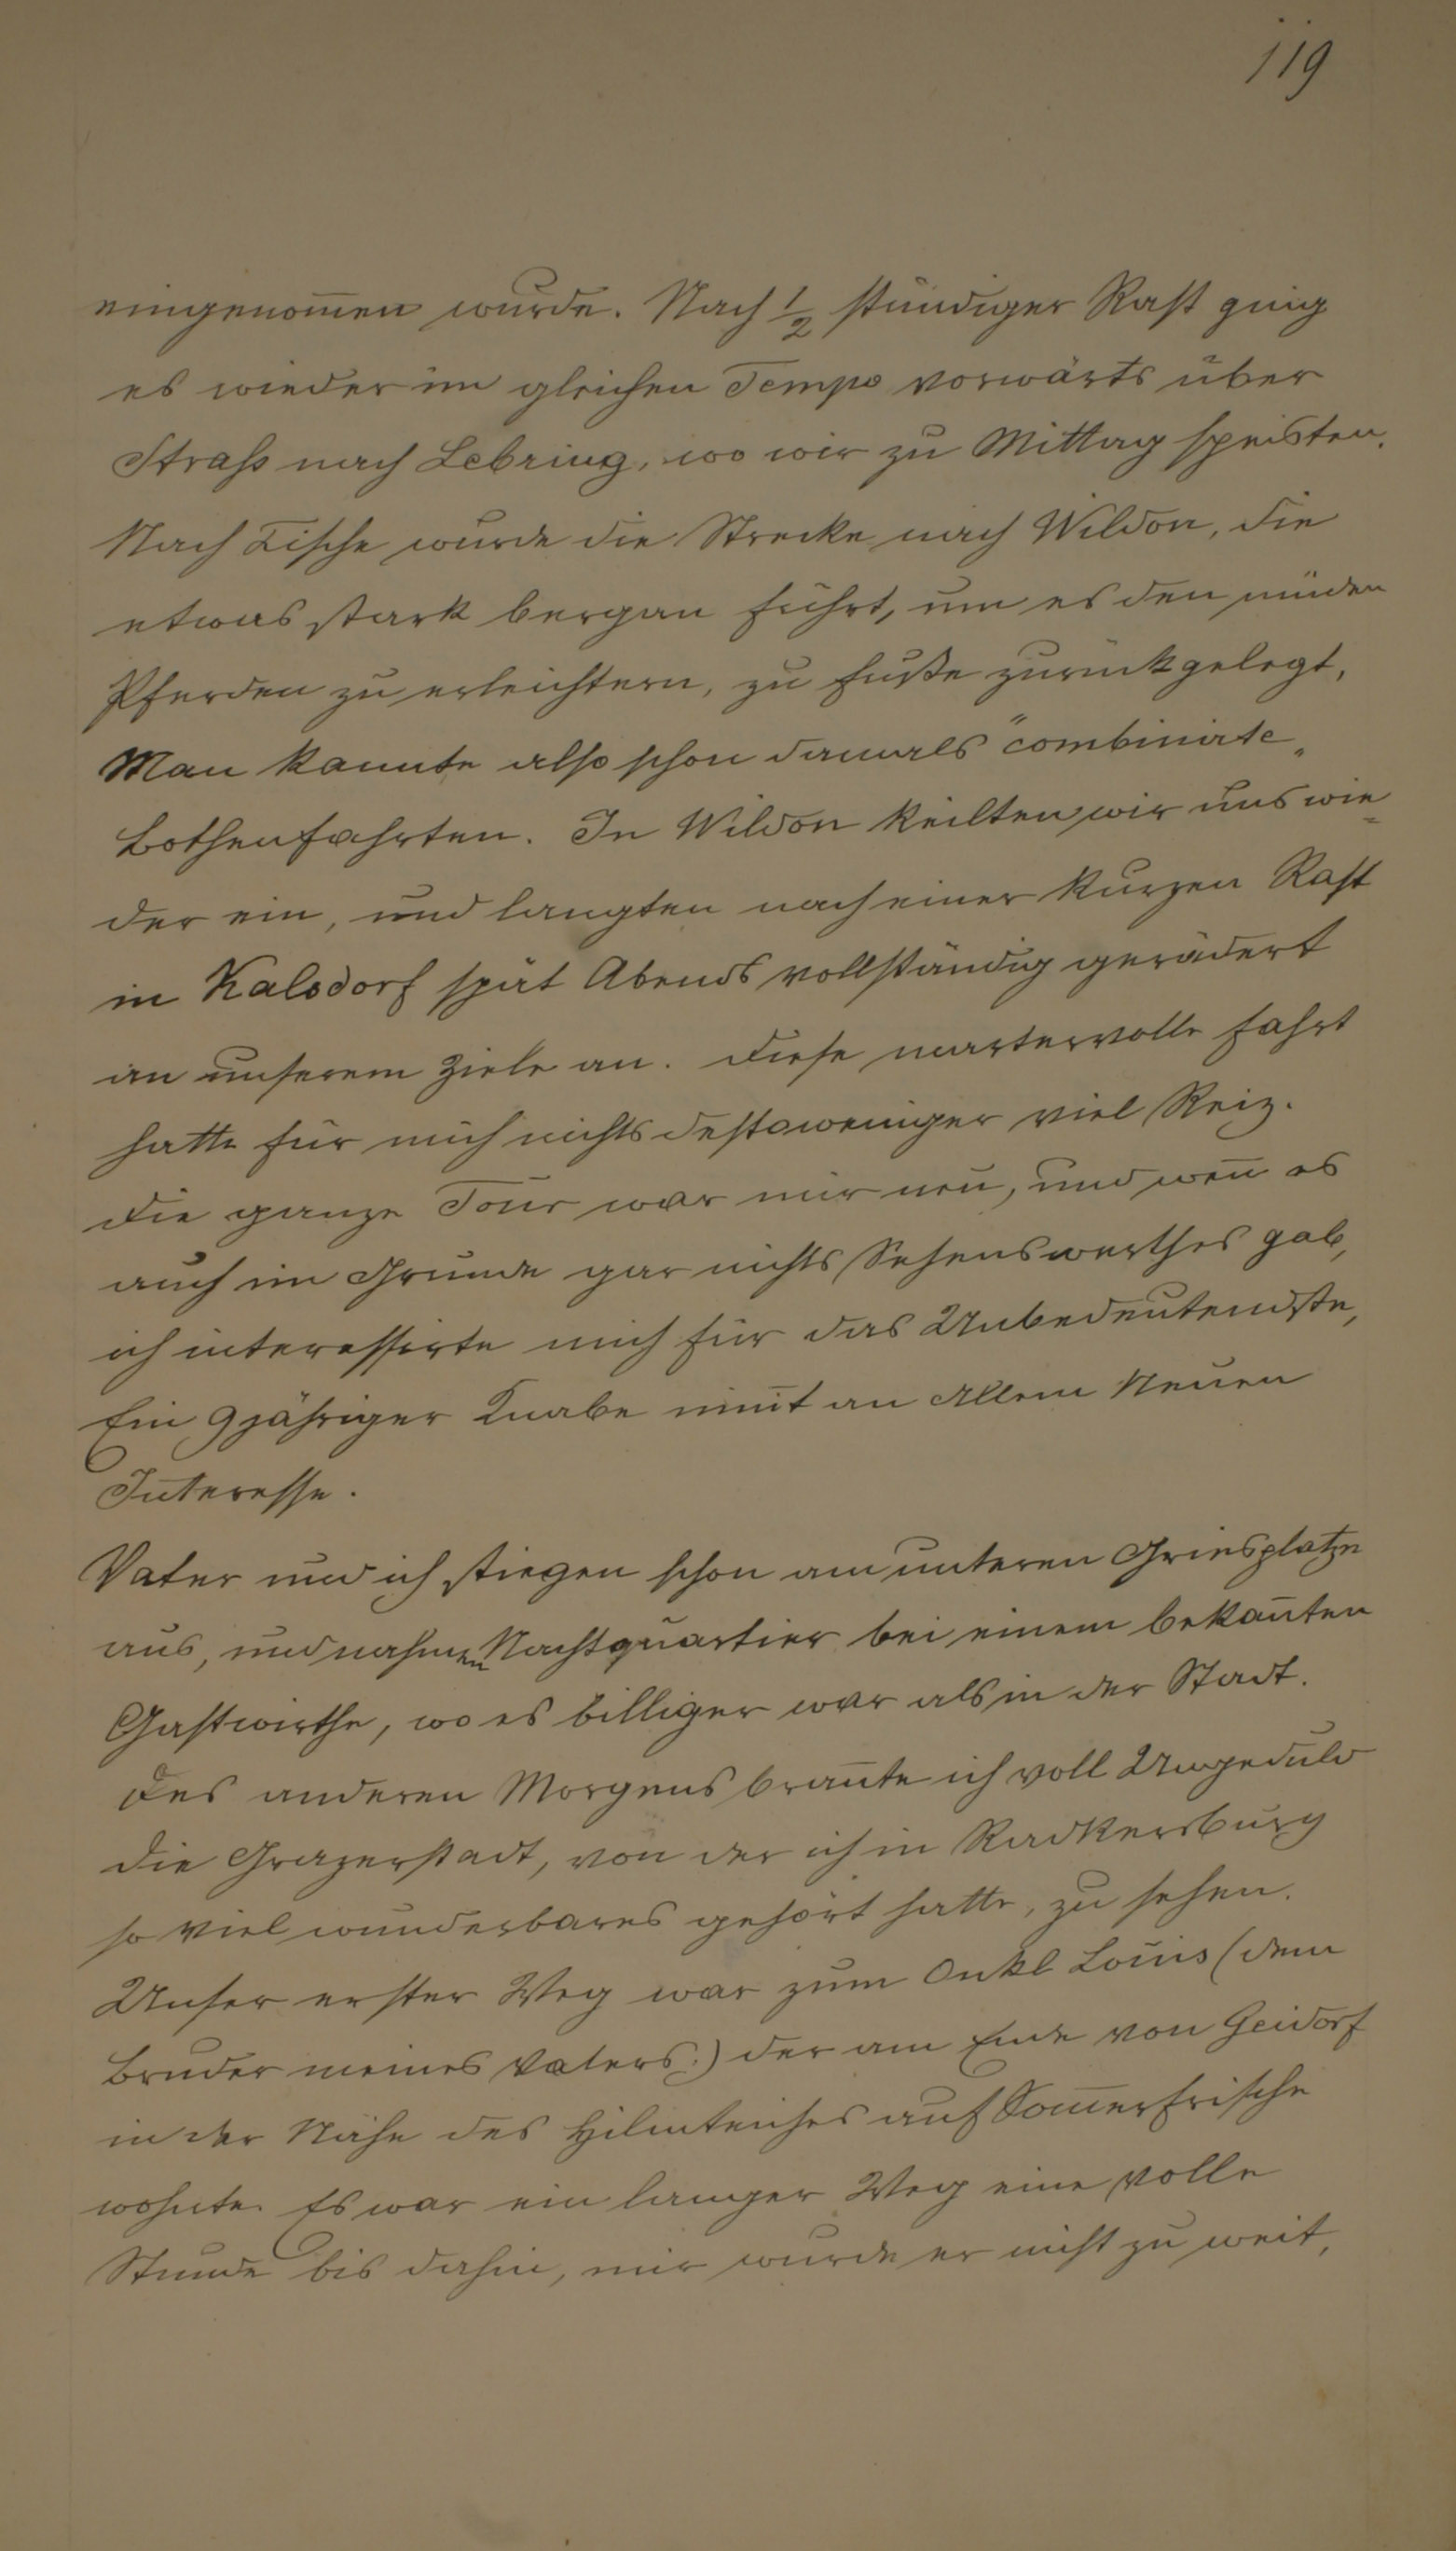 119
eingenom̄en wurde. Nach ½ stündiger Rast ging
es wieder im gleichen Tempo vorwärts über
Straß nach Lebring, wo wir zu Mittag speisten.
Nach Tische wurde die Strecke nach Wildon, die
etwas stark bergan führt, um es den müden
Pferden zu erleichtern, zu Fuße zurückgelegt,
Man kannte also schon damals "combinirte„
Bothenfahrten. In Wildon keilten wir uns wie=
der ein, und langten nach einer kurzen Rast
in Kalsdorf spät Abends vollständig gerädert
an unserem Ziele an. Diese martervolle Fahrt
hatte für mich nichts destoweniger viel Reiz.
Die ganze Tour war mir neu, und wen̄ es
auch im Grunde gar nichts Sehenswerthes gab,
ich interessirte mich für das Unbedeutendste,
Ein 9jähriger Knabe nim̄t an Allem Neuen
Interesse.
Vater und ich stiegen schon am unteren Griesplatze
aus, und nahmen Nachtquartier bei einem bekan̄ten
Gastwirthe, wo es billiger war als in der Stadt.
Des anderen Morgens bran̄te ich voll Ungeduld
die Grazerstadt, von der ich in Radkersburg
so viel wunderbares gehört hatte, zu sehen.
Unser erster Weg war zum Onkl Louis (dem
Bruder meines Vaters.) der am Ende von Geidorf
in der Nähe des Hilmteiches auf Som̄erfrische
wohnte. Es war ein langer Weg eine volle
Stunde bis dahin, mir wurde er nicht zu weit,